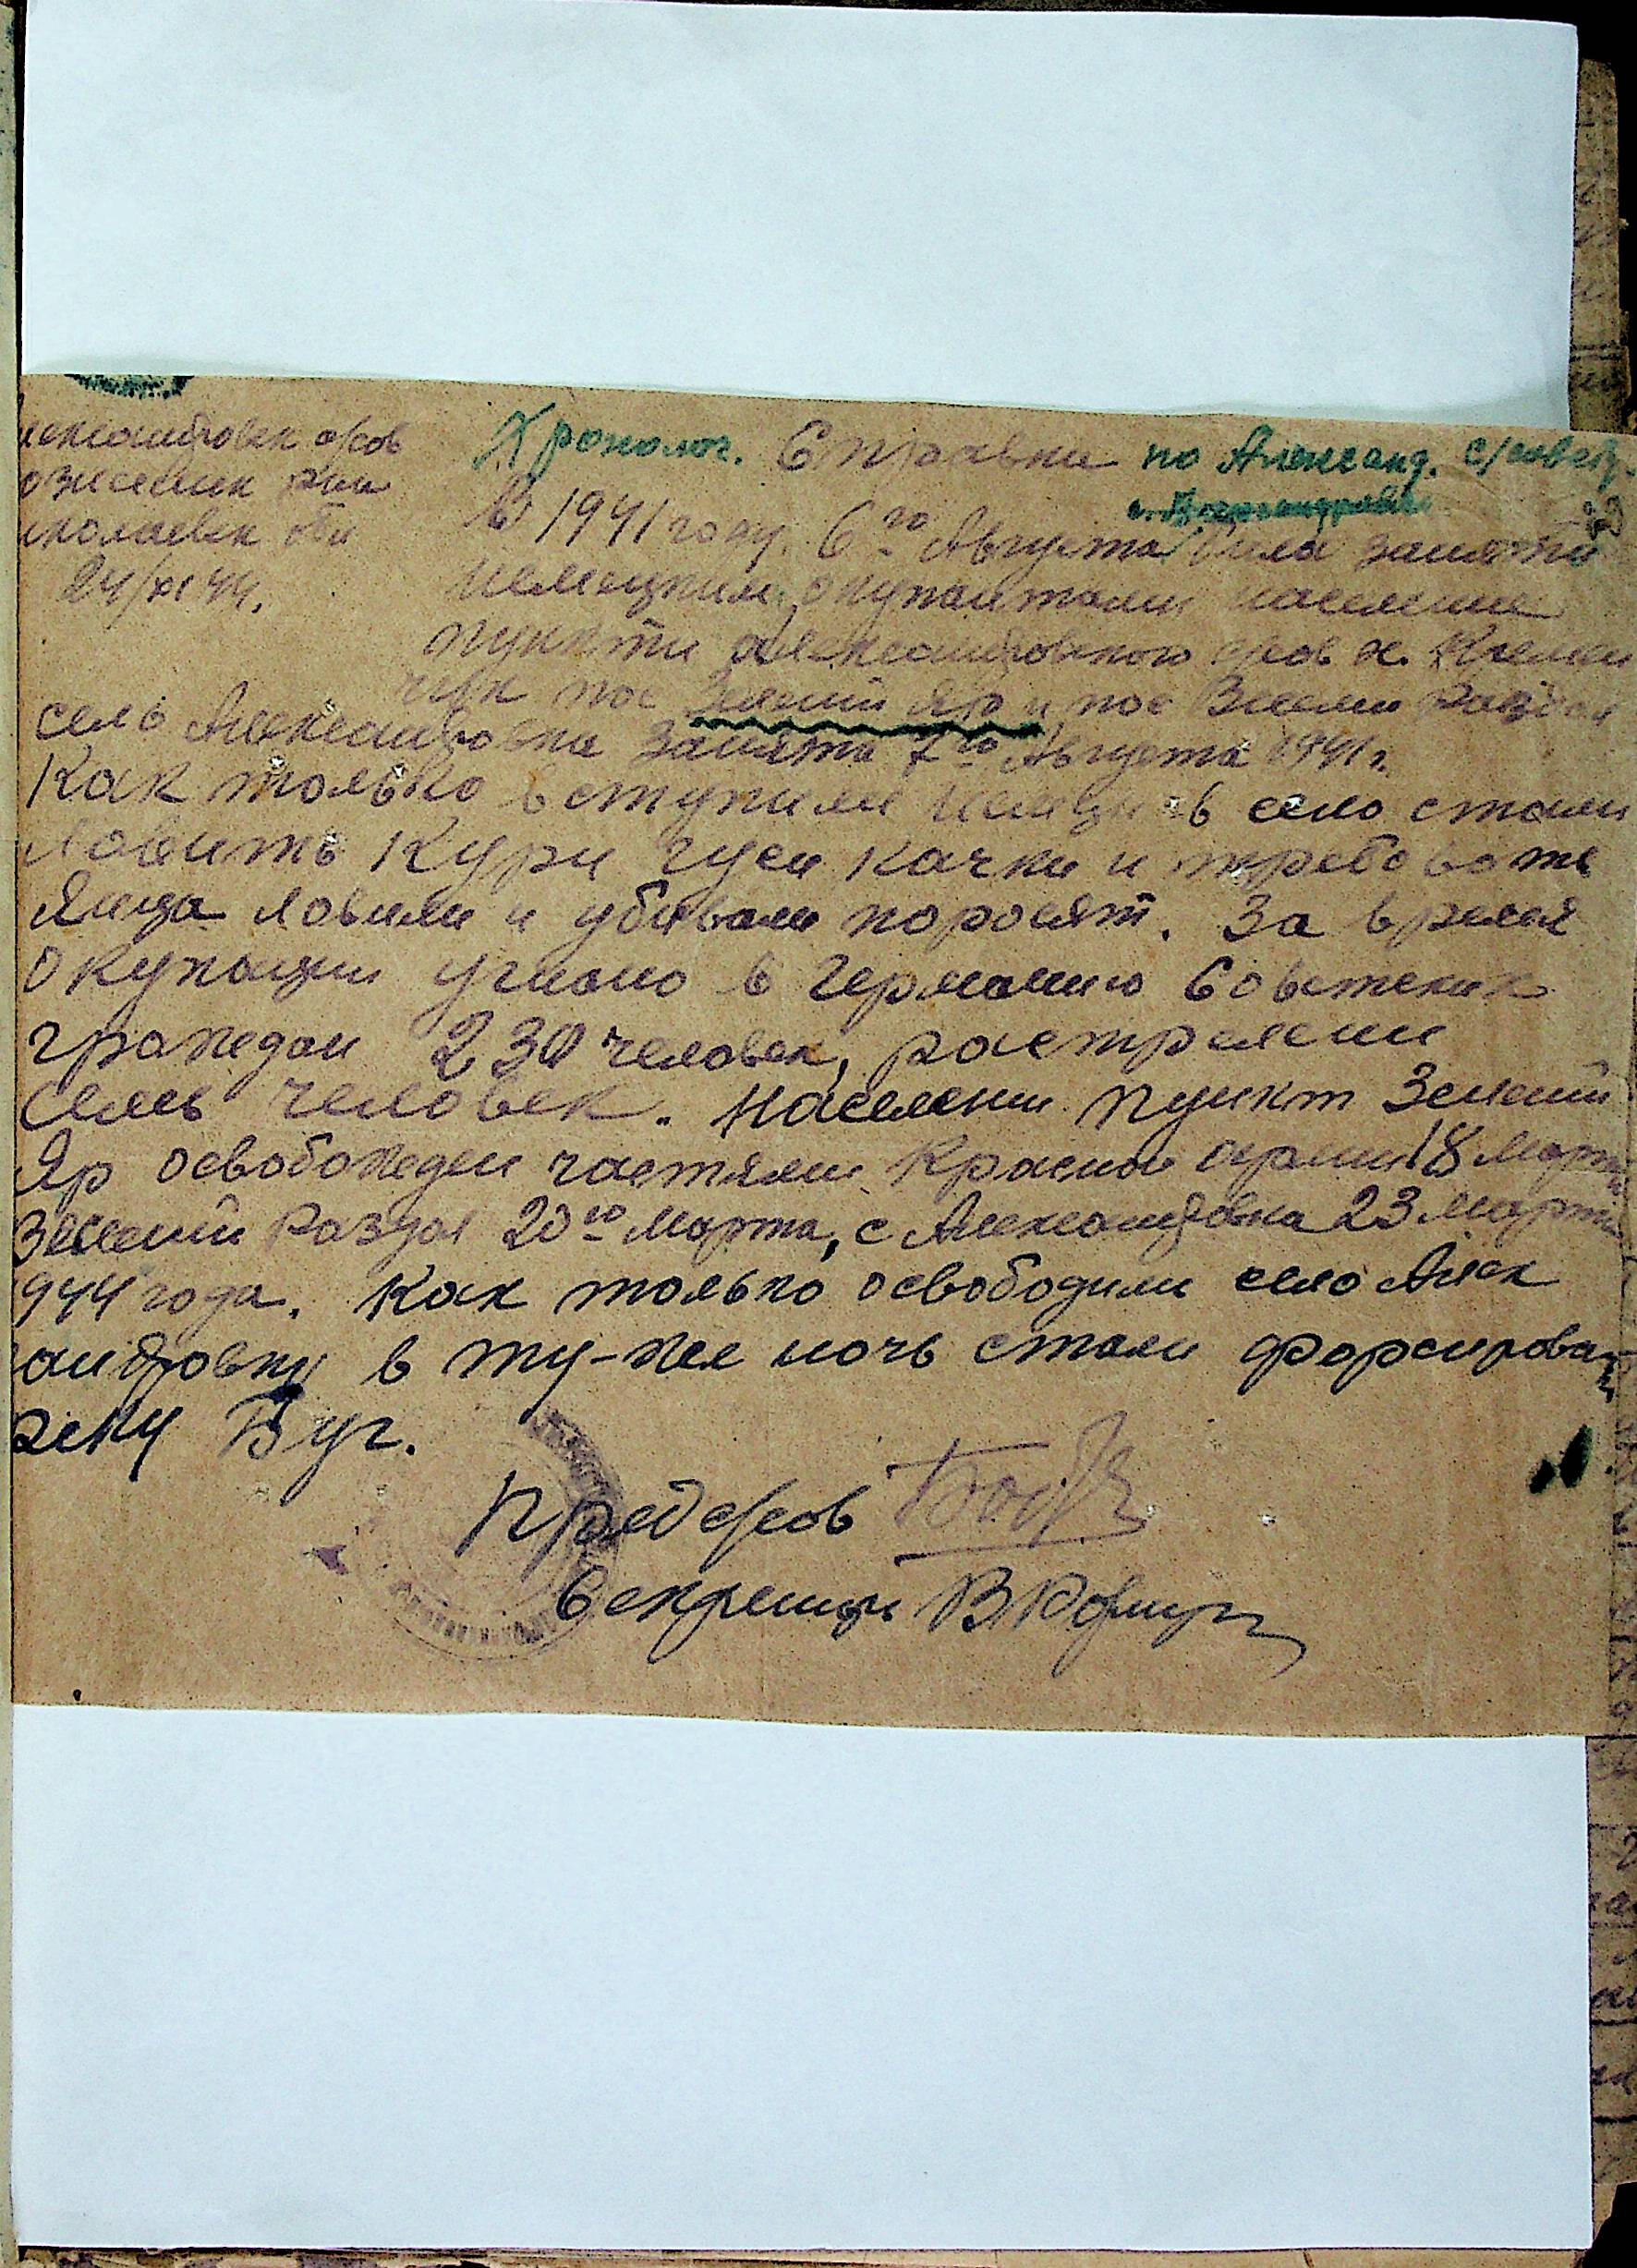 лександровск с/сов
ознесенск р-на
иколаевск обл
24/XI 44.
Хронолог. Справка по Александ. с/совету.
В 1941 году. 6го Августа била занята
немецкими окупантами население
пункти Александровского с/сов х. Кремен
чук пос Зелений Яр и пос Зелени Раздол
село Александровка занята 7го Августа 1941 г.
Как только вступили немци в село стали
ловить кури гуси качки и требовать
яйца ловили и убивали поросят. За время
окупации угнано в Германию Советских
граждан 230 человек, растреляни
семь человек. Населени пункт Зелений
Яр освобожден частями Красной армии 18 марта
Зелений Раздол 20го марта, с Александровка 23 марта
944 года. Как только освободили село Алек
андровку в ту-же ночь стали форсироват
реку Буг.
Пред с/сов
Секретарь